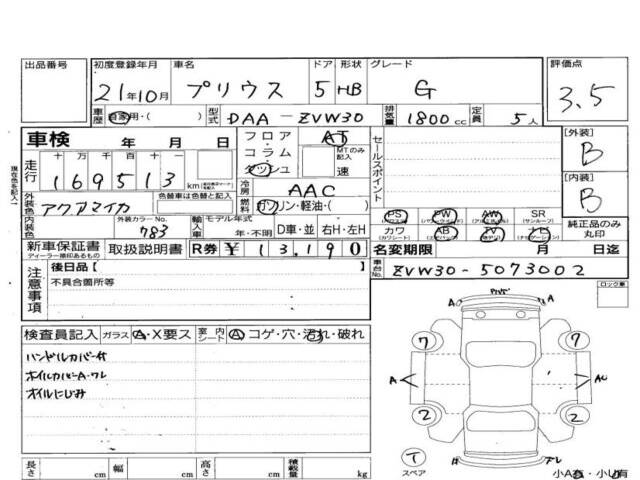 出品番号 初度登録年月 車名 ドア 形状 グレード 評価点
21年10月 プリウス 5 HB G 3.5
車歴 自家用・( ) 型式 DAA-ZVW30 排気量 1800cc 定員 5人
車検 年 月 日
フロア・コラム・ダッシュ AT MTのみ記入 速
セールスポイント
[外装] B
走行 十万千百十一
169513 km
現在色を記入
冷房 AAC
[内装] B
外装色 アクアマイカ 色替車は色替と記入
燃料 ガソリン・軽油・( )
PS PW AW SR(サンルーフ)
内装色 外装カラーNo. 783
輸入車 モデル年式 年・不明 D車・並 右H・左H
カワ(カワシート) AB TV ナビ
純正品のみ丸印
新車保証書 ディーラー捺印あるもの 取扱説明書 R券 ¥13,190
名変期限 月 日迄
車台No. ZVW30-5073002
注意事項 後日品【 】
不具合箇所等
ロック車
検査員記入 ガラス A・X要ス 室内シート A コゲ・穴・汚れ・破れ
ハンドルカバー付
ホイルカバーA・ワレ
オイルにじみ
A A
7 7
A
2 2
T
スペア
小A有・小U有
長さ cm 幅 cm 高さ cm 積載量 kg